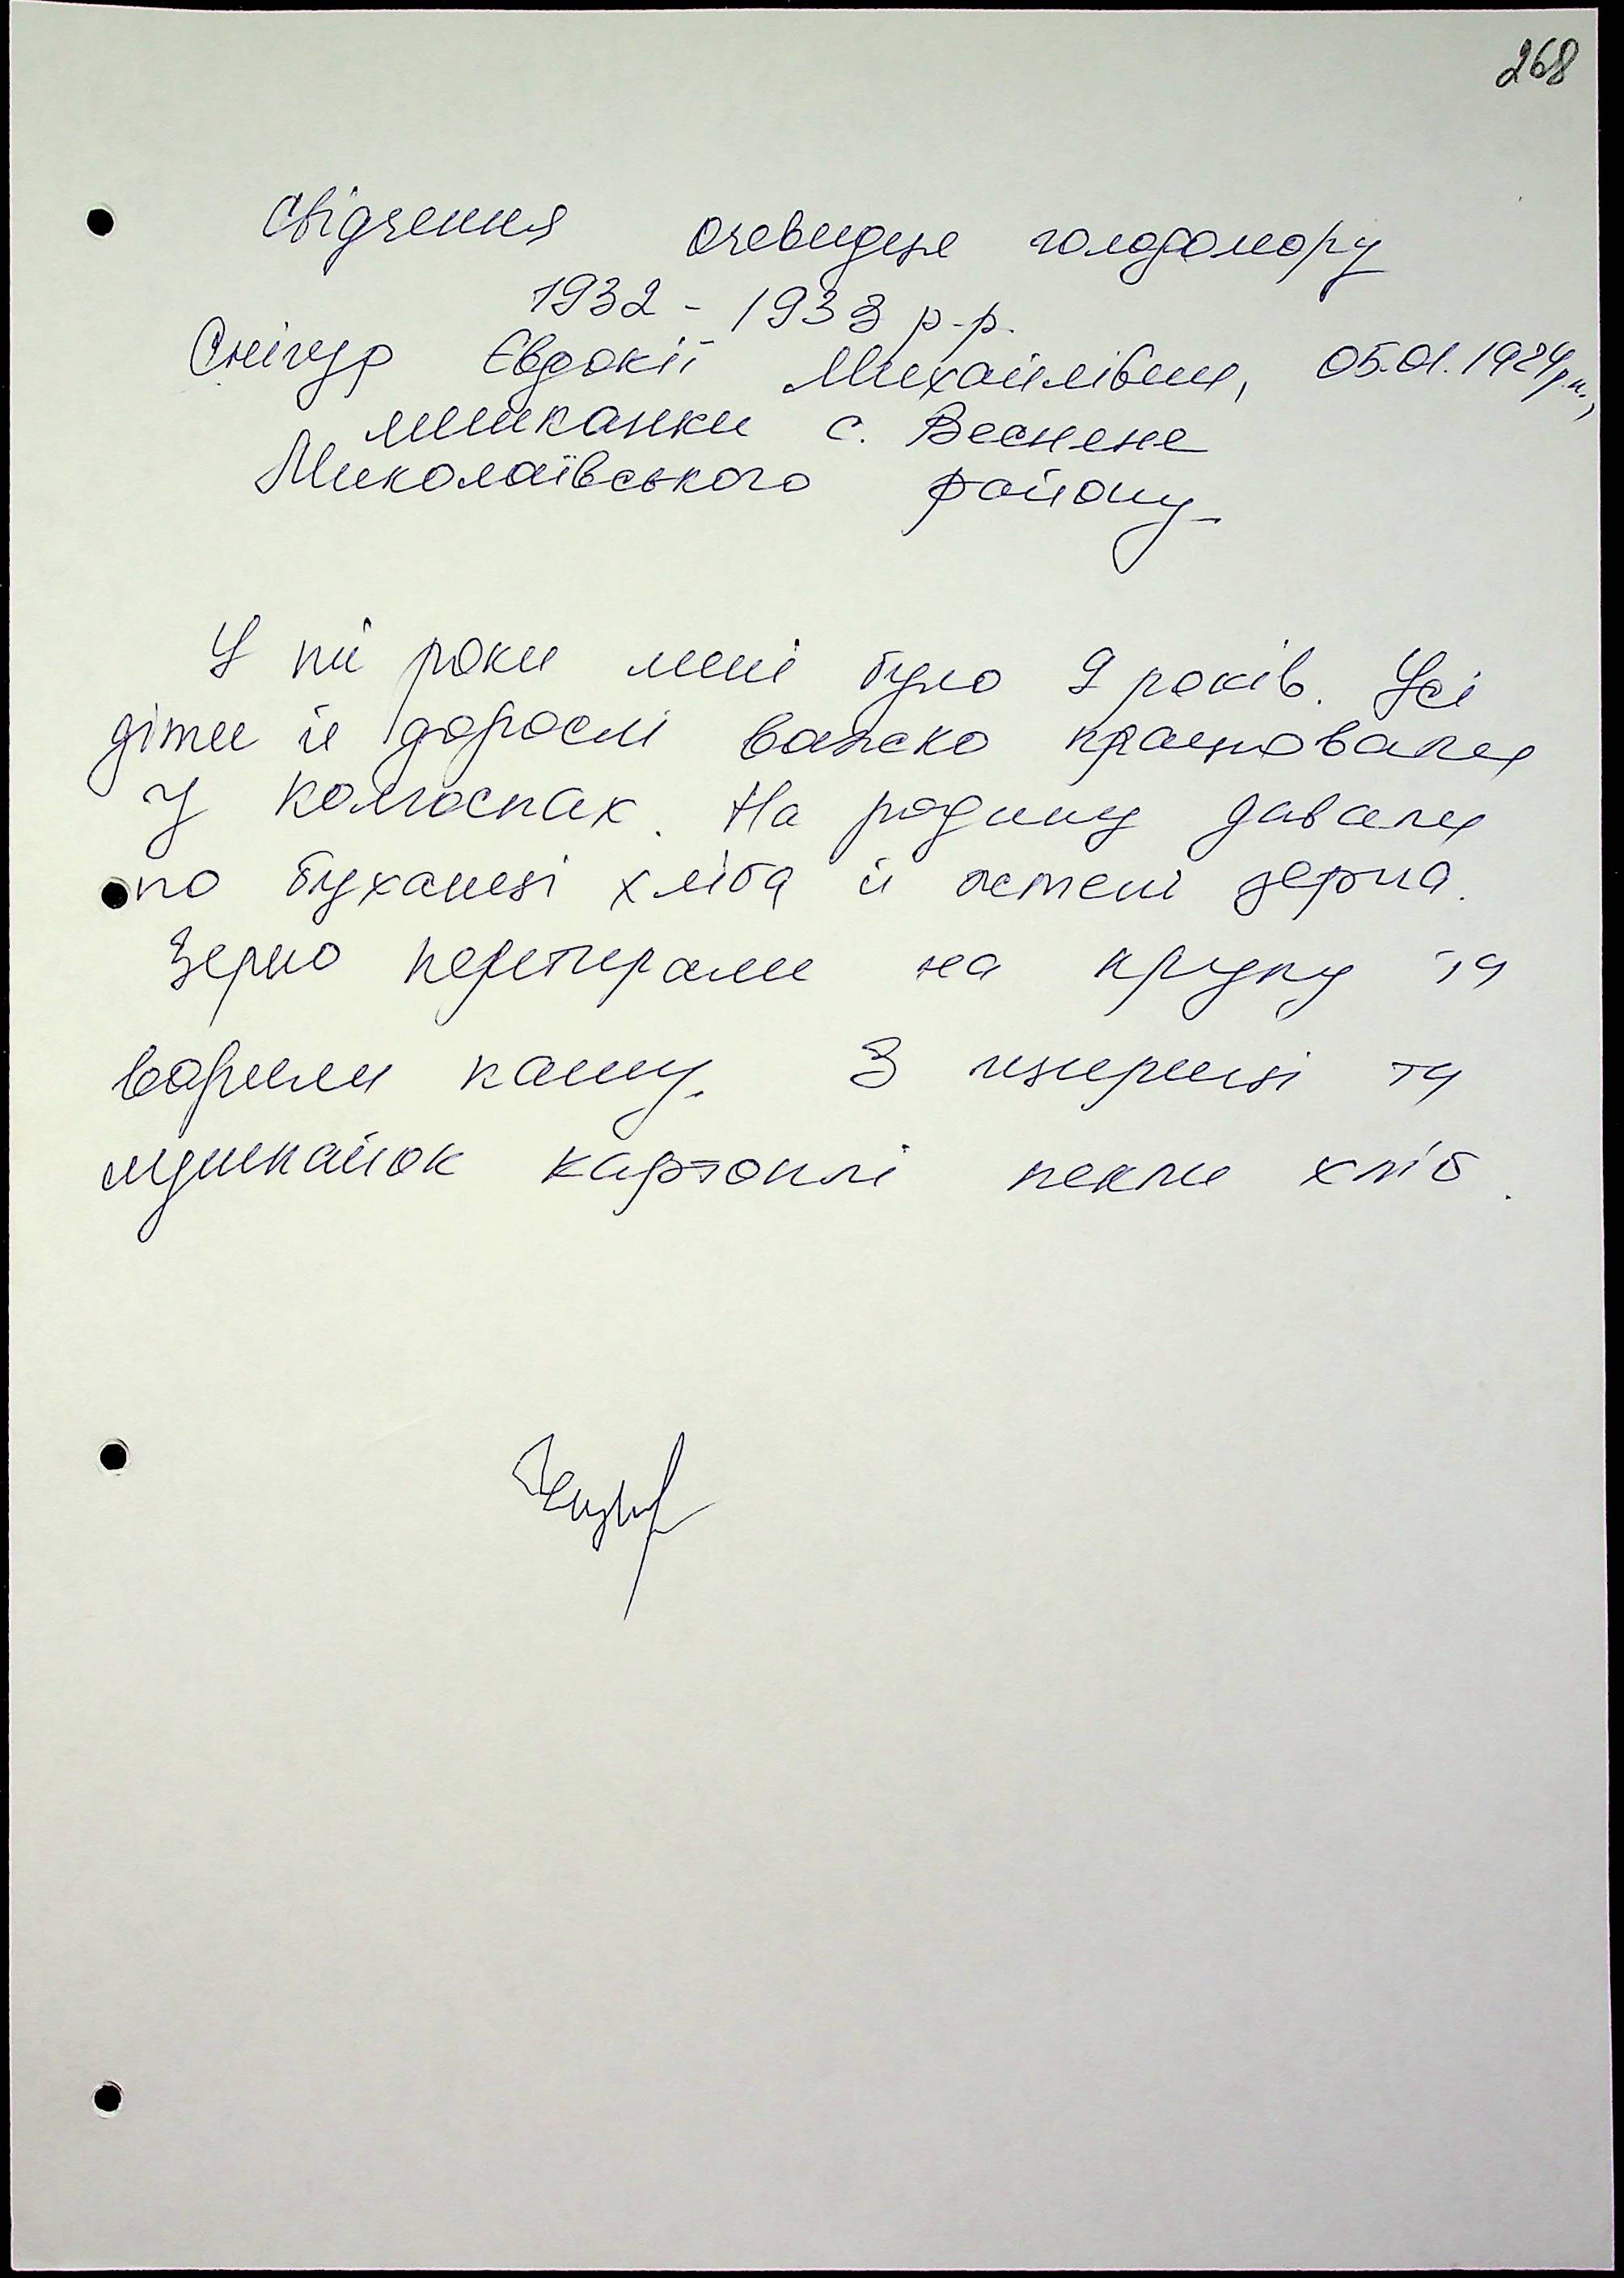 268
Свідчення очевидця голодомору
1932 - 1933 р-р.
Снігур Євдокії Михайлівни, 05.01.1924 р.н.,
мешканки с. Веснене
Миколаївського району
У ті роки мені було 9 років. Усі
діти й дорослі важко працювали
у колгоспах. На родину давали
по буханці хліба й жмені зерна.
Зерно перетирали на крупу та
варили кашу. З щириці та
лушпайок картоплі пекли хліб.